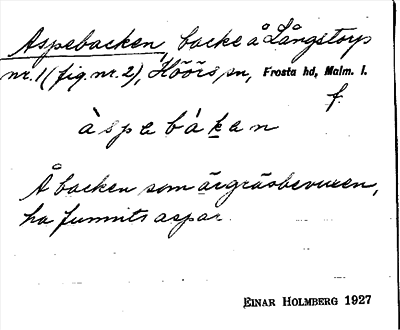 Aspebacken, backe å Långstorp
nr. 1 (fig. nr. 2), Höörs sn, Frosta hd, Malm. l.
f.
àspebákan
Å backen som är gräsbevuxen,
ha funnits aspar.
EINAR HOLMBERG 1927